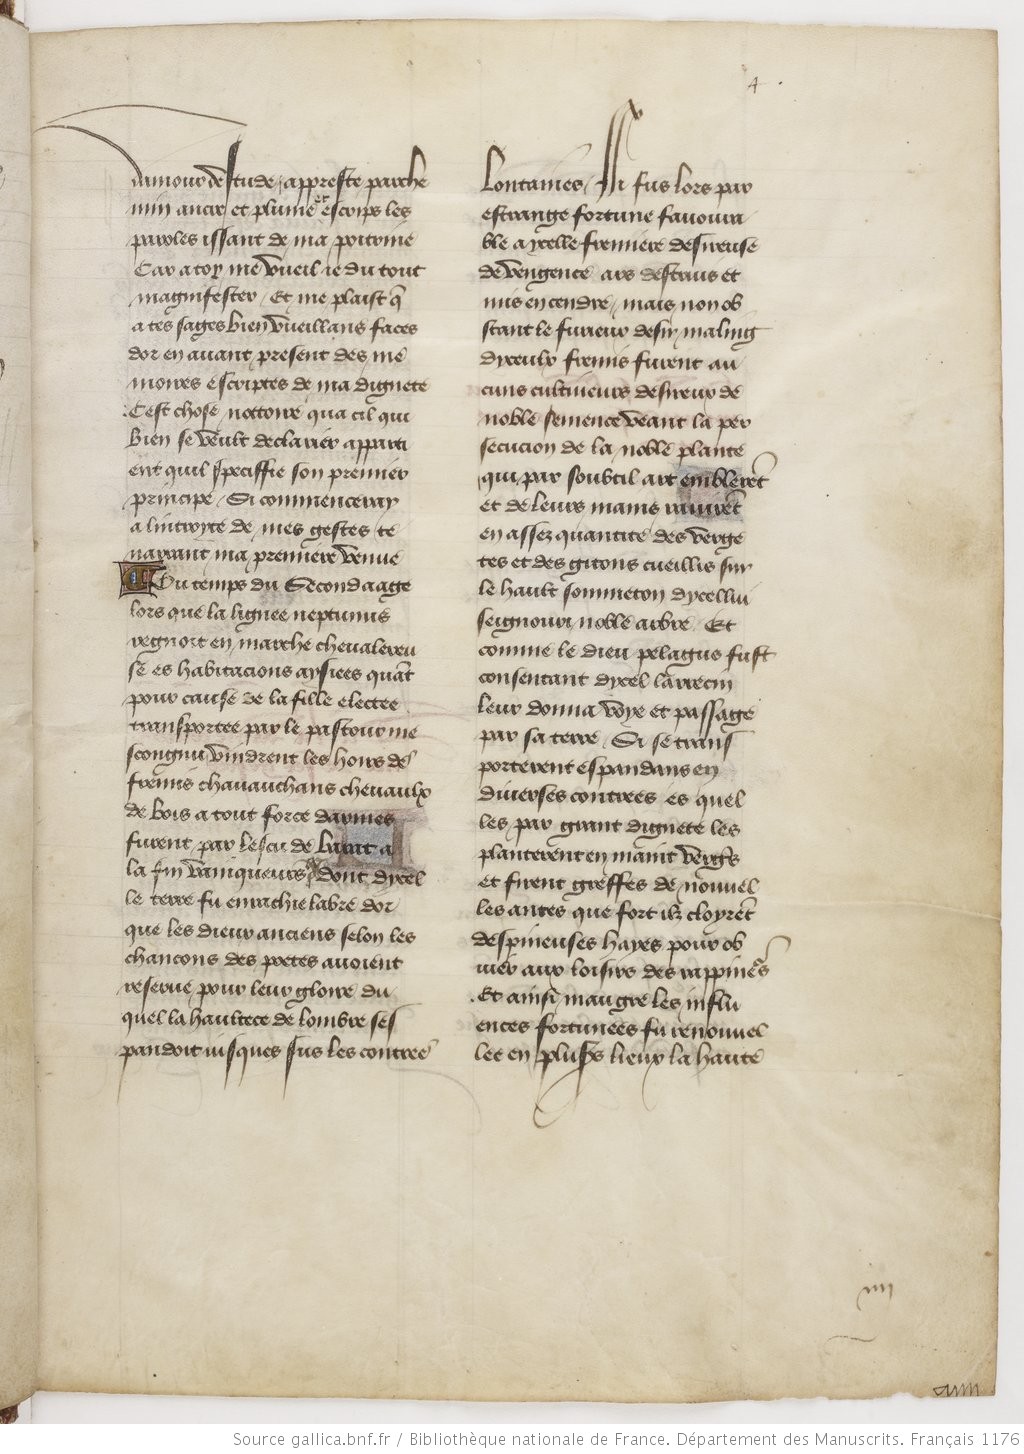 4
damour de stude appreste parche
min ancre et plume et escrips les
paroles issant de ma poitrine
Car a toy me vueil ie du tout
magnifester / Et me plaist q̃
a tes sages bien vueillans faces
dor en auant present des me
moires escriptes de ma dignete
Cest chose nottoire qua cil qui
bien se veult declairer apparti
ent quil speciffie son premier
principe / Si commenceray
a lintroyte de mes gestes te
narrant ma premiere venue
Ou temps du Second aage
lors que la lignee neptunus
regnoit en marche cheualereu
se es habitacions aysiees quãt
pour cause de la fille electee
transportee par le pastour me
scongnu vindrent les hoirs de
fremis chauauchans cheuaulx
de bois a tout force darmes
furent par lescu de barat a
la fin vainqueurs dont dycel
le terre fu enrachie labre dor
que les dieux anciens selon les
chancons des poetes auoient
reserue pour leur gloire du
quel la haultece de lombre ses
pandoit iusques sus les contrees
Lontaines / Si fus lors par
estrange fortune fauoura
ble a ycelle fremiere desireuse
de vengence ars destruis et
mis en cendre / mais non ob
stant le furieux desir maling
dyceulx fremis furent au
cuns cultiueurs desireux de
noble semence veant la per
secucion de la noble plante
qui par soubtil art emblerẽt
et de leurs mains rauirẽt
en assez quantite des verge
tes et des gitons cueillis sur
le hault sommeton dycellui
seignouri noble arbre / Et
comme le dieu pelagus fust
consentant dycel larrecin
leur donna voye et passage
par sa terre / Si se trans
porterent espandans en
diuerses contrees es quel
les par grant dignete les
planterent en maint vergẽs
et firent greffes de nouuel
les antes que fort ilz cloyrẽt
despineuses hayes pour ob
uier aux loisirs des rappine͛s
Et ainsi maugre les influ
ences fortunees fu renouuel
lee en plus͛s lieux la haute
iiii
Source gallica.bnf.fr / Bibliothèque nationale de France. Département des Manuscrits. Français 1176